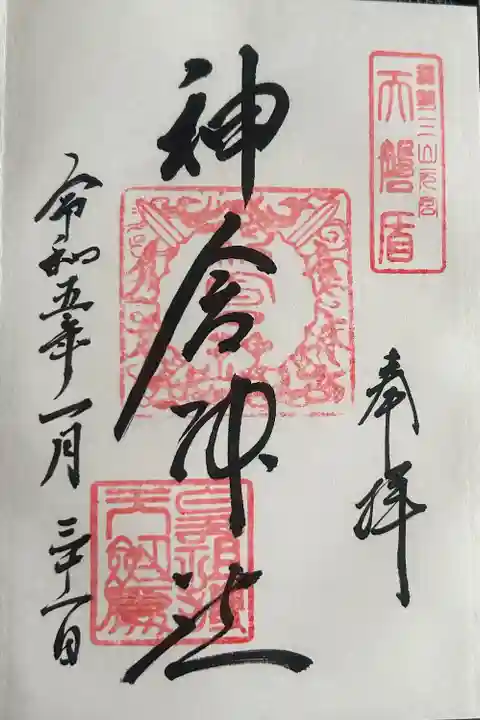 熊野三山元宮
天磐盾
奉拝
神倉神社
令和五年一月三十一日